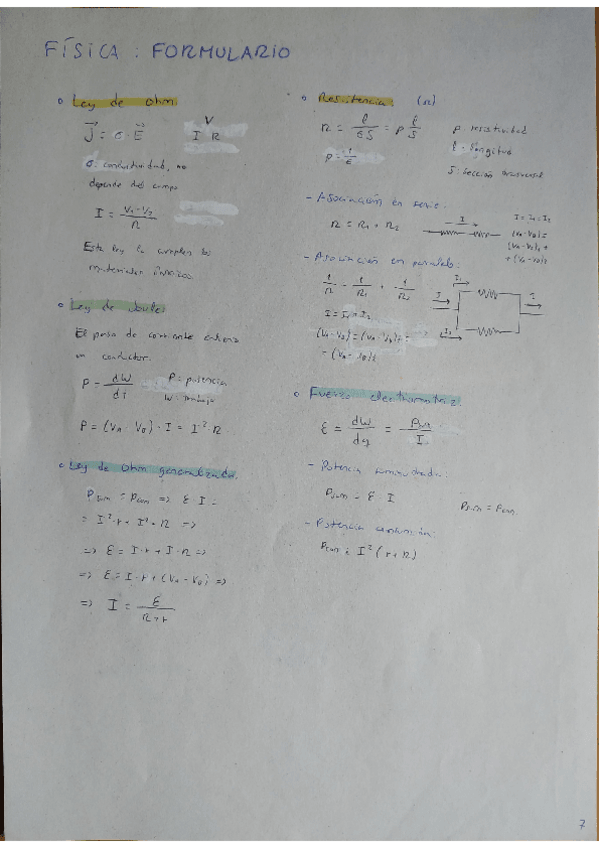 FÍSICA : FORMULARIO
Ley de Ohm:
J = σ · E
V
I R
σ: conductividad, no
depende del campo
I = (VA - VB) / R
Esta ley la cumplen los
materiales óhmicos.
Ley de Joule:
El paso de corriente calienta
un conductor.
P = dW / dt
P = potencia
W = trabajo
P = (VA - VB) · I = I² · R
Ley de Ohm generalizada:
Psum = Pcon => ε · I =
= I² · r + I² · R =>
=> ε = I · r + I · R =>
=> ε = I · r + (VA - VB) =>
=> I = ε / (R + r)
Resistencia: (Ω)
R = l / (σS) = ρ l / S
ρ = 1 / σ
ρ: resistividad
l = longitud
S: sección transversal
- Asociación en serie:
R = R1 + R2
I
I = I1 = I2
(VA - VB) =
(VA - VB)1 +
+ (VA - VB)2
- Asociación en paralelo:
1/R = 1/R1 + 1/R2
I = I1 + I2
(VA - VB) = (VA - VB)1 =
= (VA - VB)2
I1
I
I
I2
Fuerza electromotriz:
ε = dW / dq = Psum / I
- Potencia suministrada:
Psum = ε · I
Psum = Pcon
- Potencia consumida:
Pcon = I² (r + R)
7